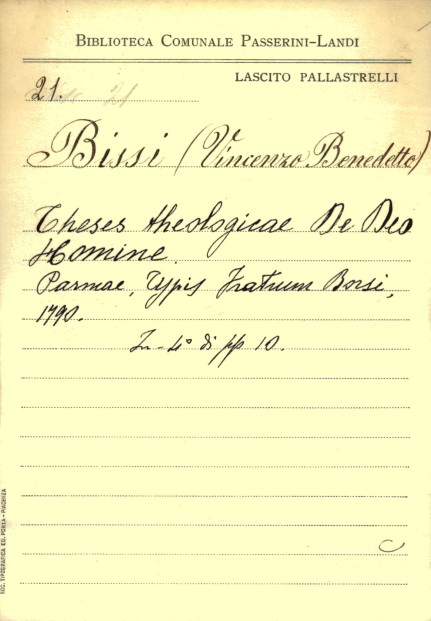 BIBLIOTECA COMUNALE PASSERINI-LANDI
LASCITO PALLASTRELLI
21.
Bissi (Vincenzo Benedetto)
Theses theologicae De Deo
Homine.
Parmae, Typis Fratrum Borsi,
1790.
In-4° di pp 10.
C
SOC. TIPOGRAFICA ED. PORTA - PIACENZA